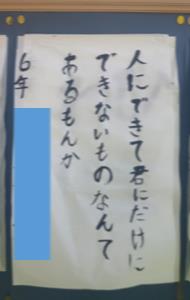 人にできて君にだけに
できないものなんて
あるもんか
6年